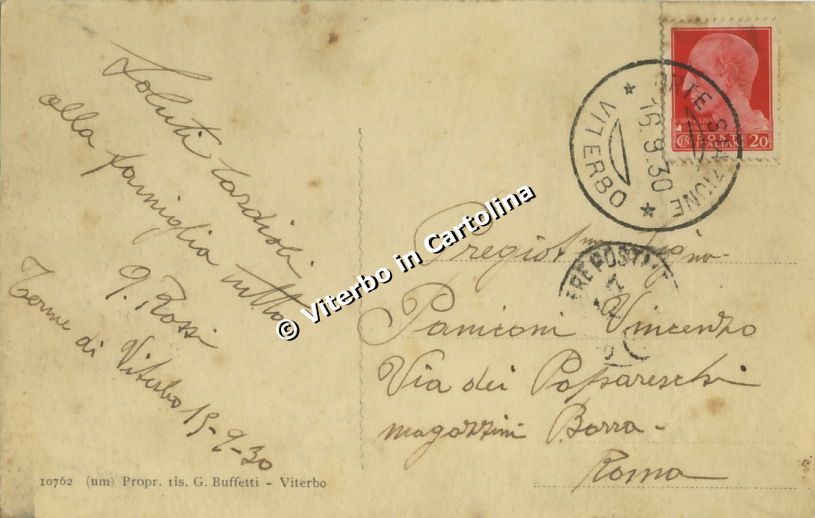 Saluti Cordiali
alla famiglia tutta
G. Rossi
Terme di Viterbo 15-9-30
10762 (um) Propr. ris. G. Buffetti - Viterbo
© Viterbo in Cartolina
VITERBO
16.9.30
POSTE
ITALIANE
20
Pregiot.mo Signo-
Paniconi Vincenzo
Via dei Papareschi
magazzini Borra-
Roma